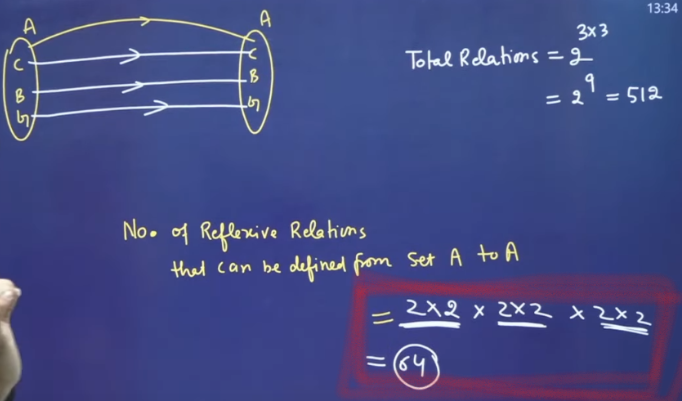 13:34
A
A
C
B
G
C
B
G
Total Relations = 2^3x3
= 2^9 = 512
No. of Reflexive Relations
that can be defined from set A to A
= 2x2 x 2x2 x 2x2
= 64